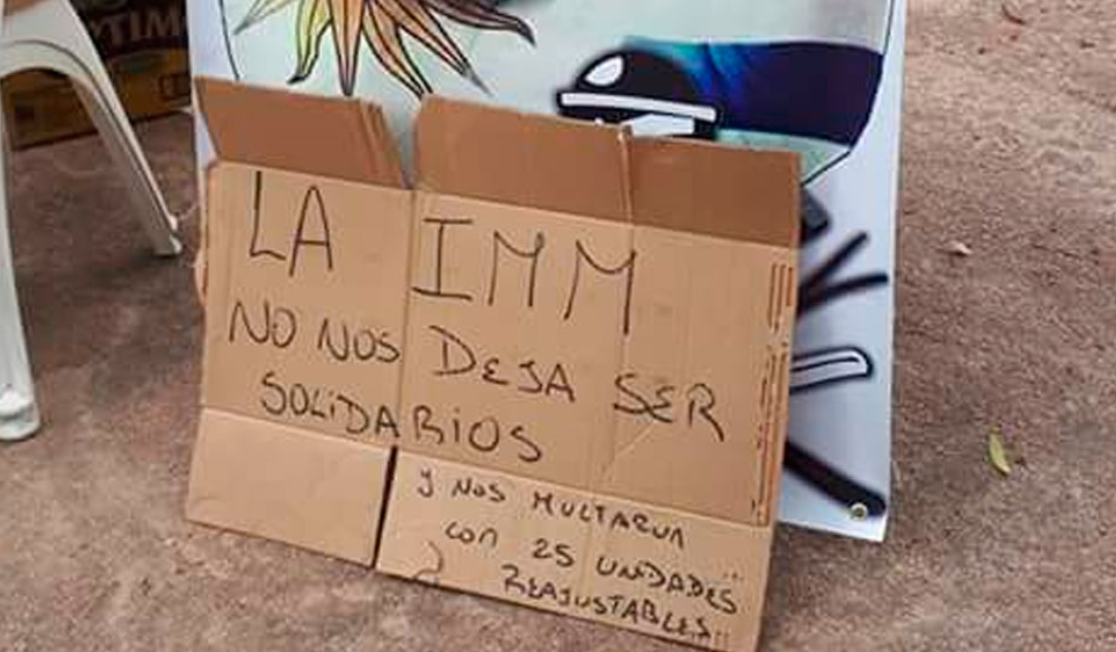 TIM
LA IMM
NO NOS DEJA SER
SOLiDARiOS
y NOS MULTARON
con 25 UNIDADES
REAJUSTABLES!!